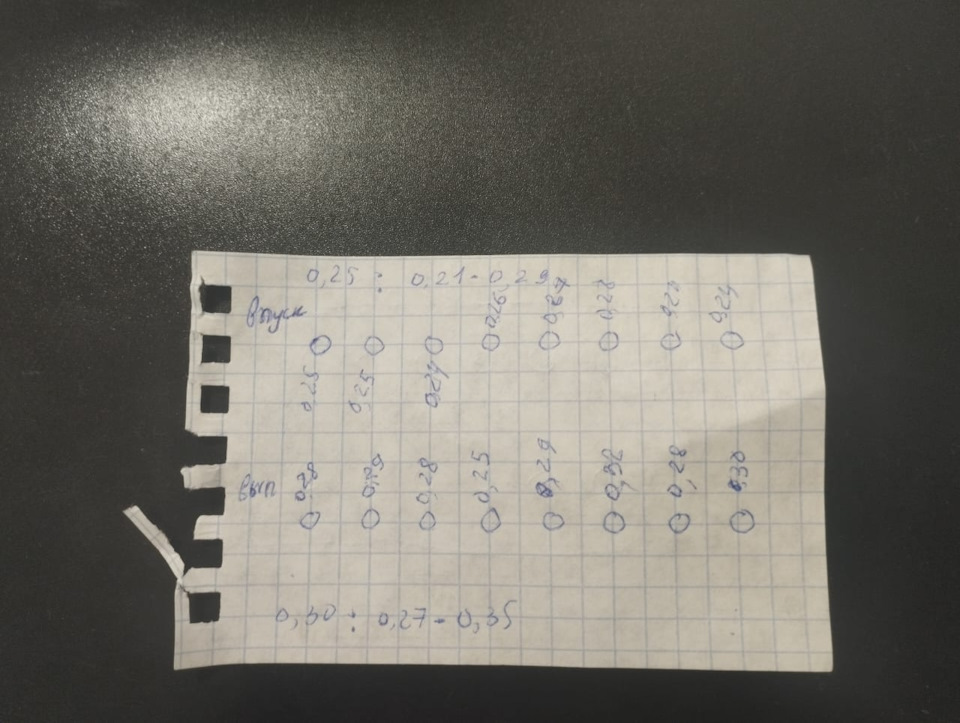 0,25 : 0,21 - 0,29
Впуск
0,25 0,25 0,24 0,26 0,27 0,28 0,24
вып 0,28 0,25 0,29 0,32 0,28 0,30
0,30 : 0,27 - 0,35